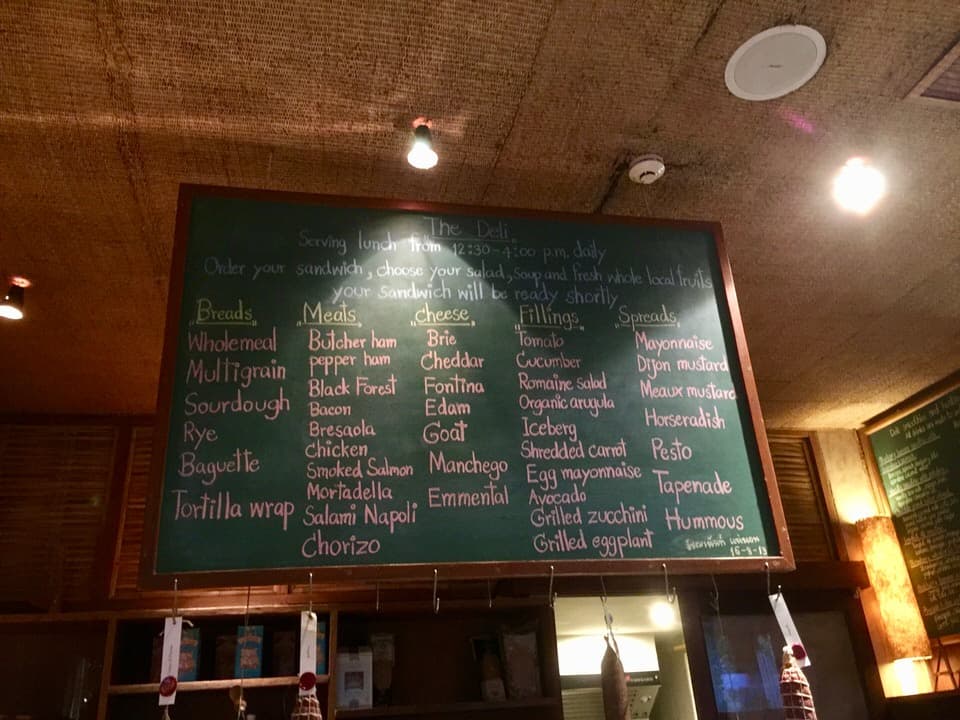 The Deli
Serving lunch from 12:30-4:00 p.m. daily
Order your sandwich, choose your salad, soup and fresh whole local fruits
your sandwich will be ready shortly
Breads
Wholemeal
Multigrain
Sourdough
Rye
Baguette
Tortilla wrap
Meats
Butcher ham
pepper ham
Black Forest
Bacon
Bresaola
Chicken
Smoked Salmon
Mortadella
Salami Napoli
Chorizo
cheese
Brie
Cheddar
Fontina
Edam
Goat
Manchego
Emmental
Fillings
Tomato
Cucumber
Romaine salad
Organic arugula
Iceberg
Shredded carrot
Egg mayonnaise
Avocado
Grilled zucchini
Grilled eggplant
Spreads
Mayonnaise
Dijon mustard
Meaux mustard
Horseradish
Pesto
Tapenade
Hummous